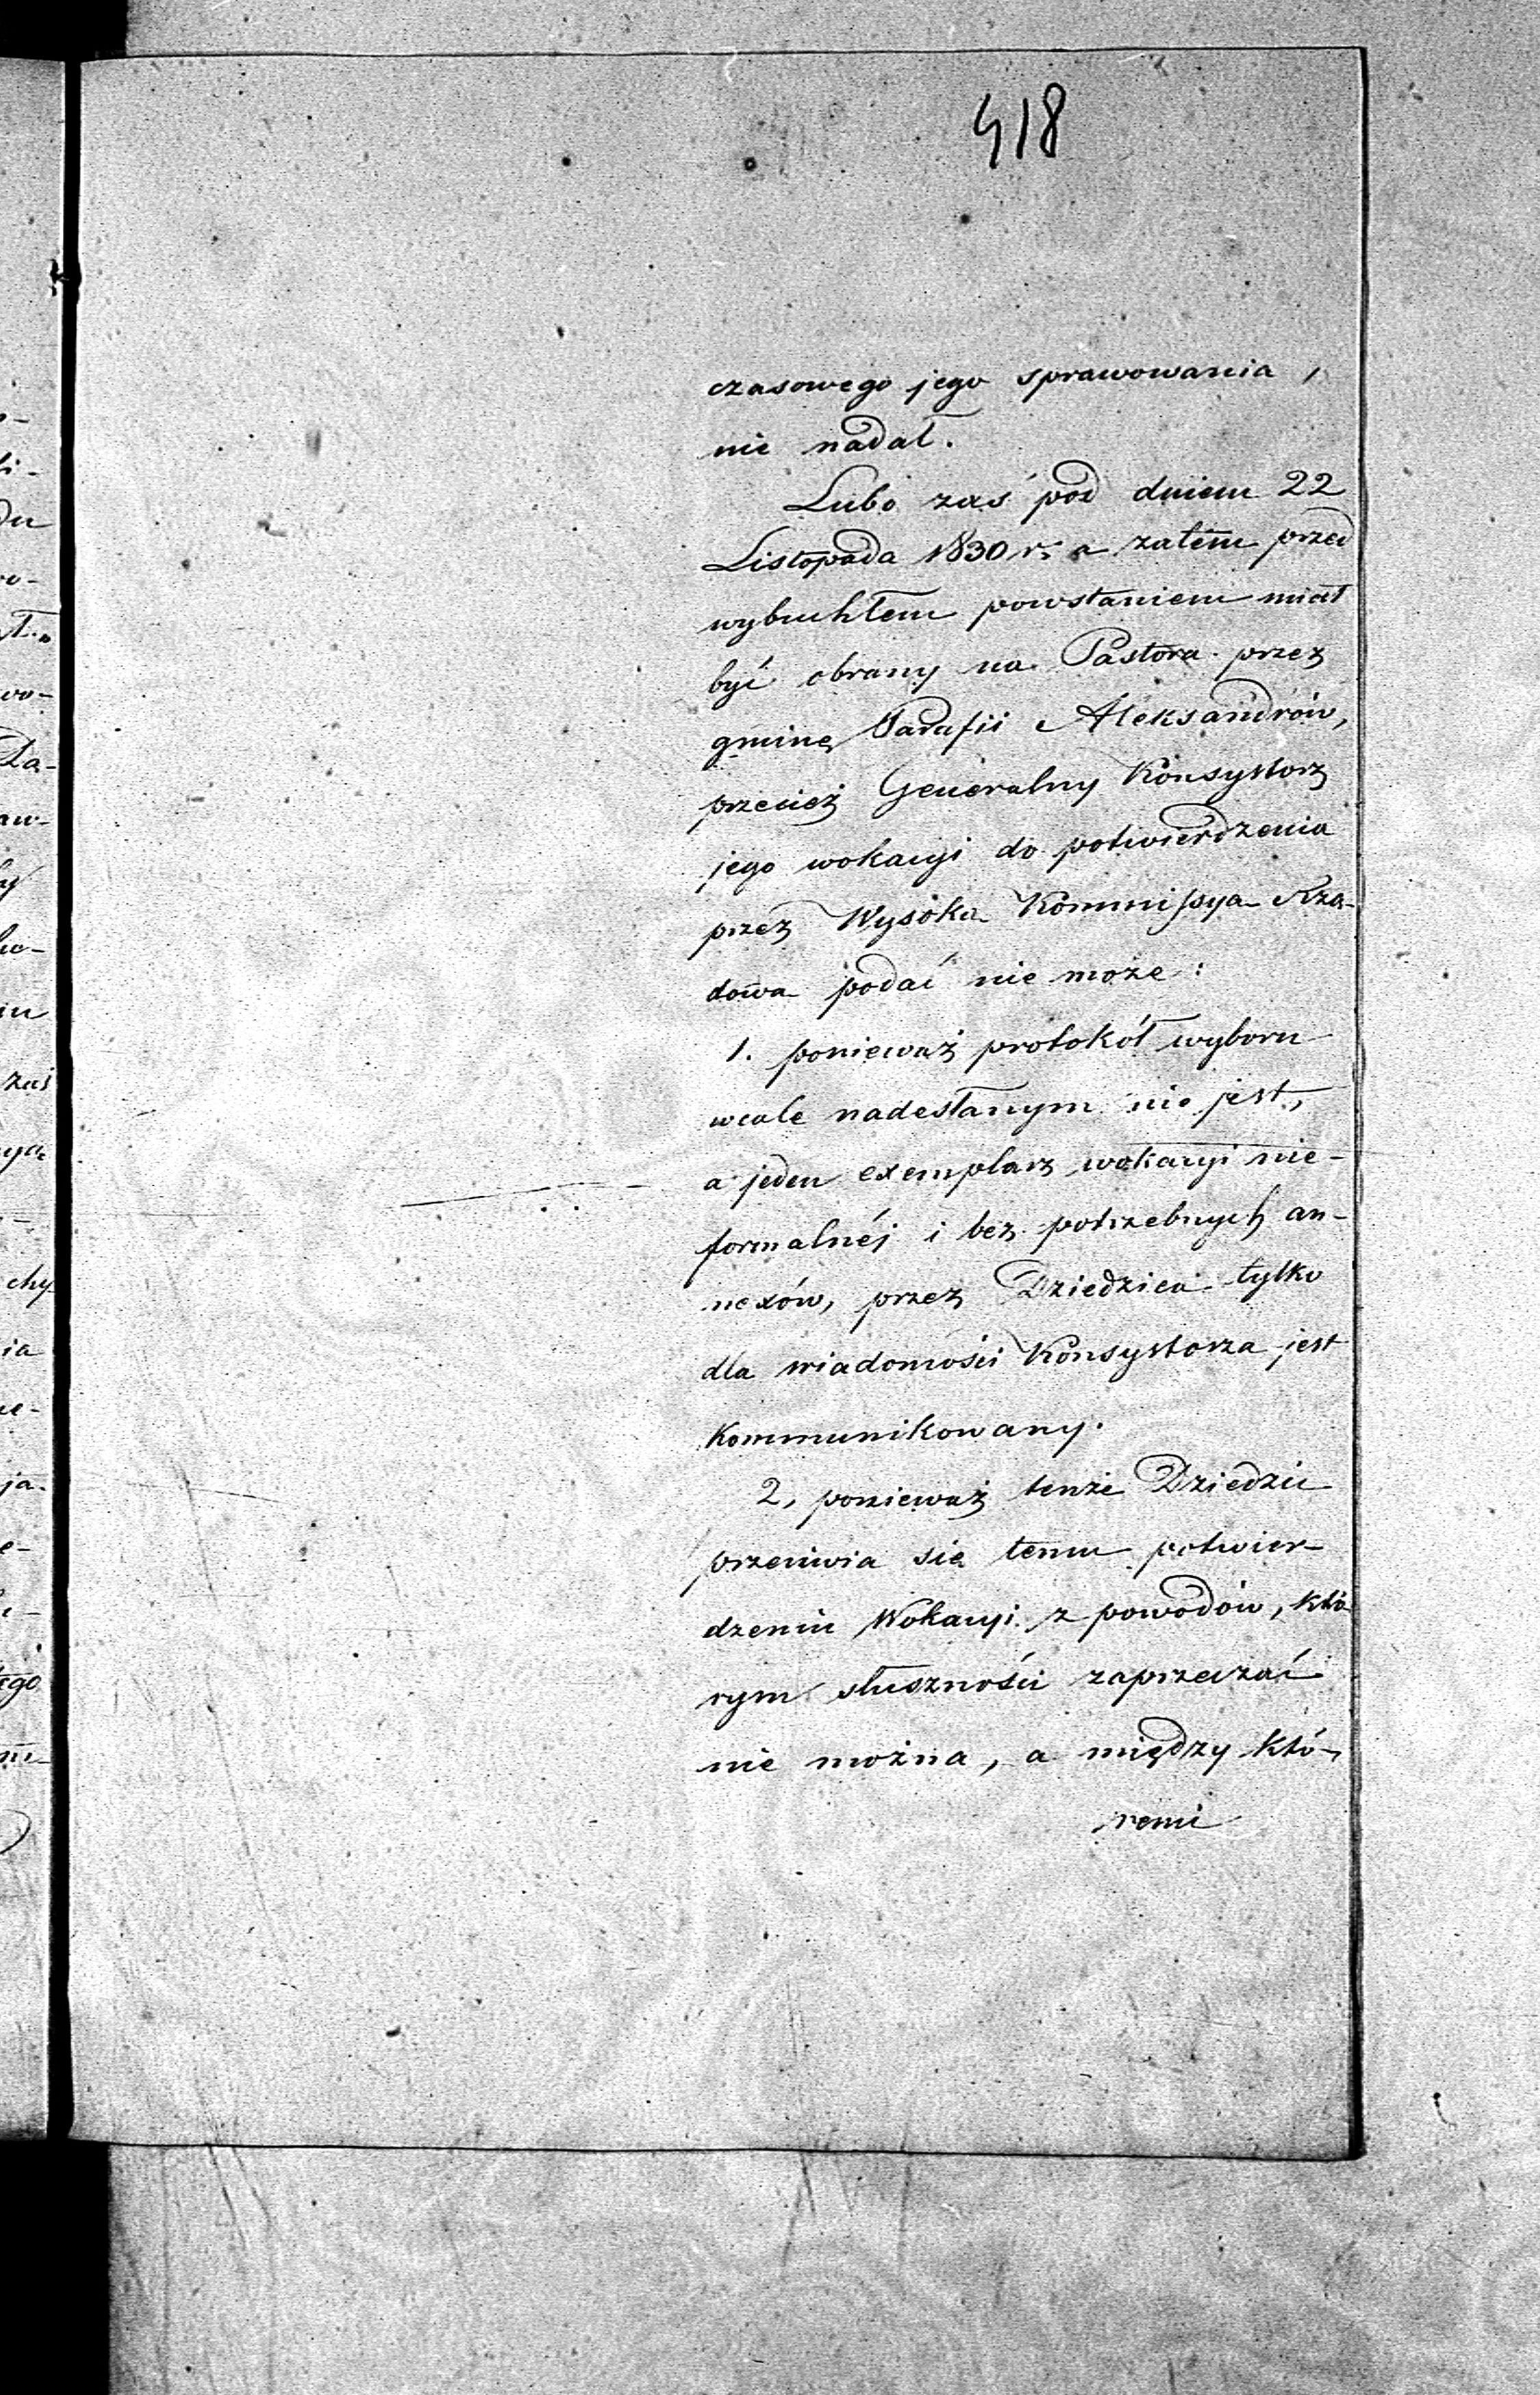 418
czasowego jego sprawowania,
nie nadał.
Lubo zaś pod dniem 22
Listopada 1830 r. a zatém przed
wybuchłem powstaniem miał
być obrany na Pastora przez
gminę Parafii Aleksandrów,
przecież Generalny Konsystorz
jego wokacyi do potwierdzenia
przez Wysoka Kommissya Rza-
dowa podać nie może:
1. ponieważ protokół wyboru
wcale nadesłanym nie jest,
a jeden exemplarz wokacyi nie-
formalnéj i bez potrzebnych an-
nexów, przez Dziedzica tylko
dla wiadomości Konsystorza jest
kommunikowany.
2, ponieważ tenże Dziedzic
przeciwia się temu potwier-
dzeniu Wokacyi z powodów, któ
rym słuszności zaprzeczać
nie można, a między któ-
remi